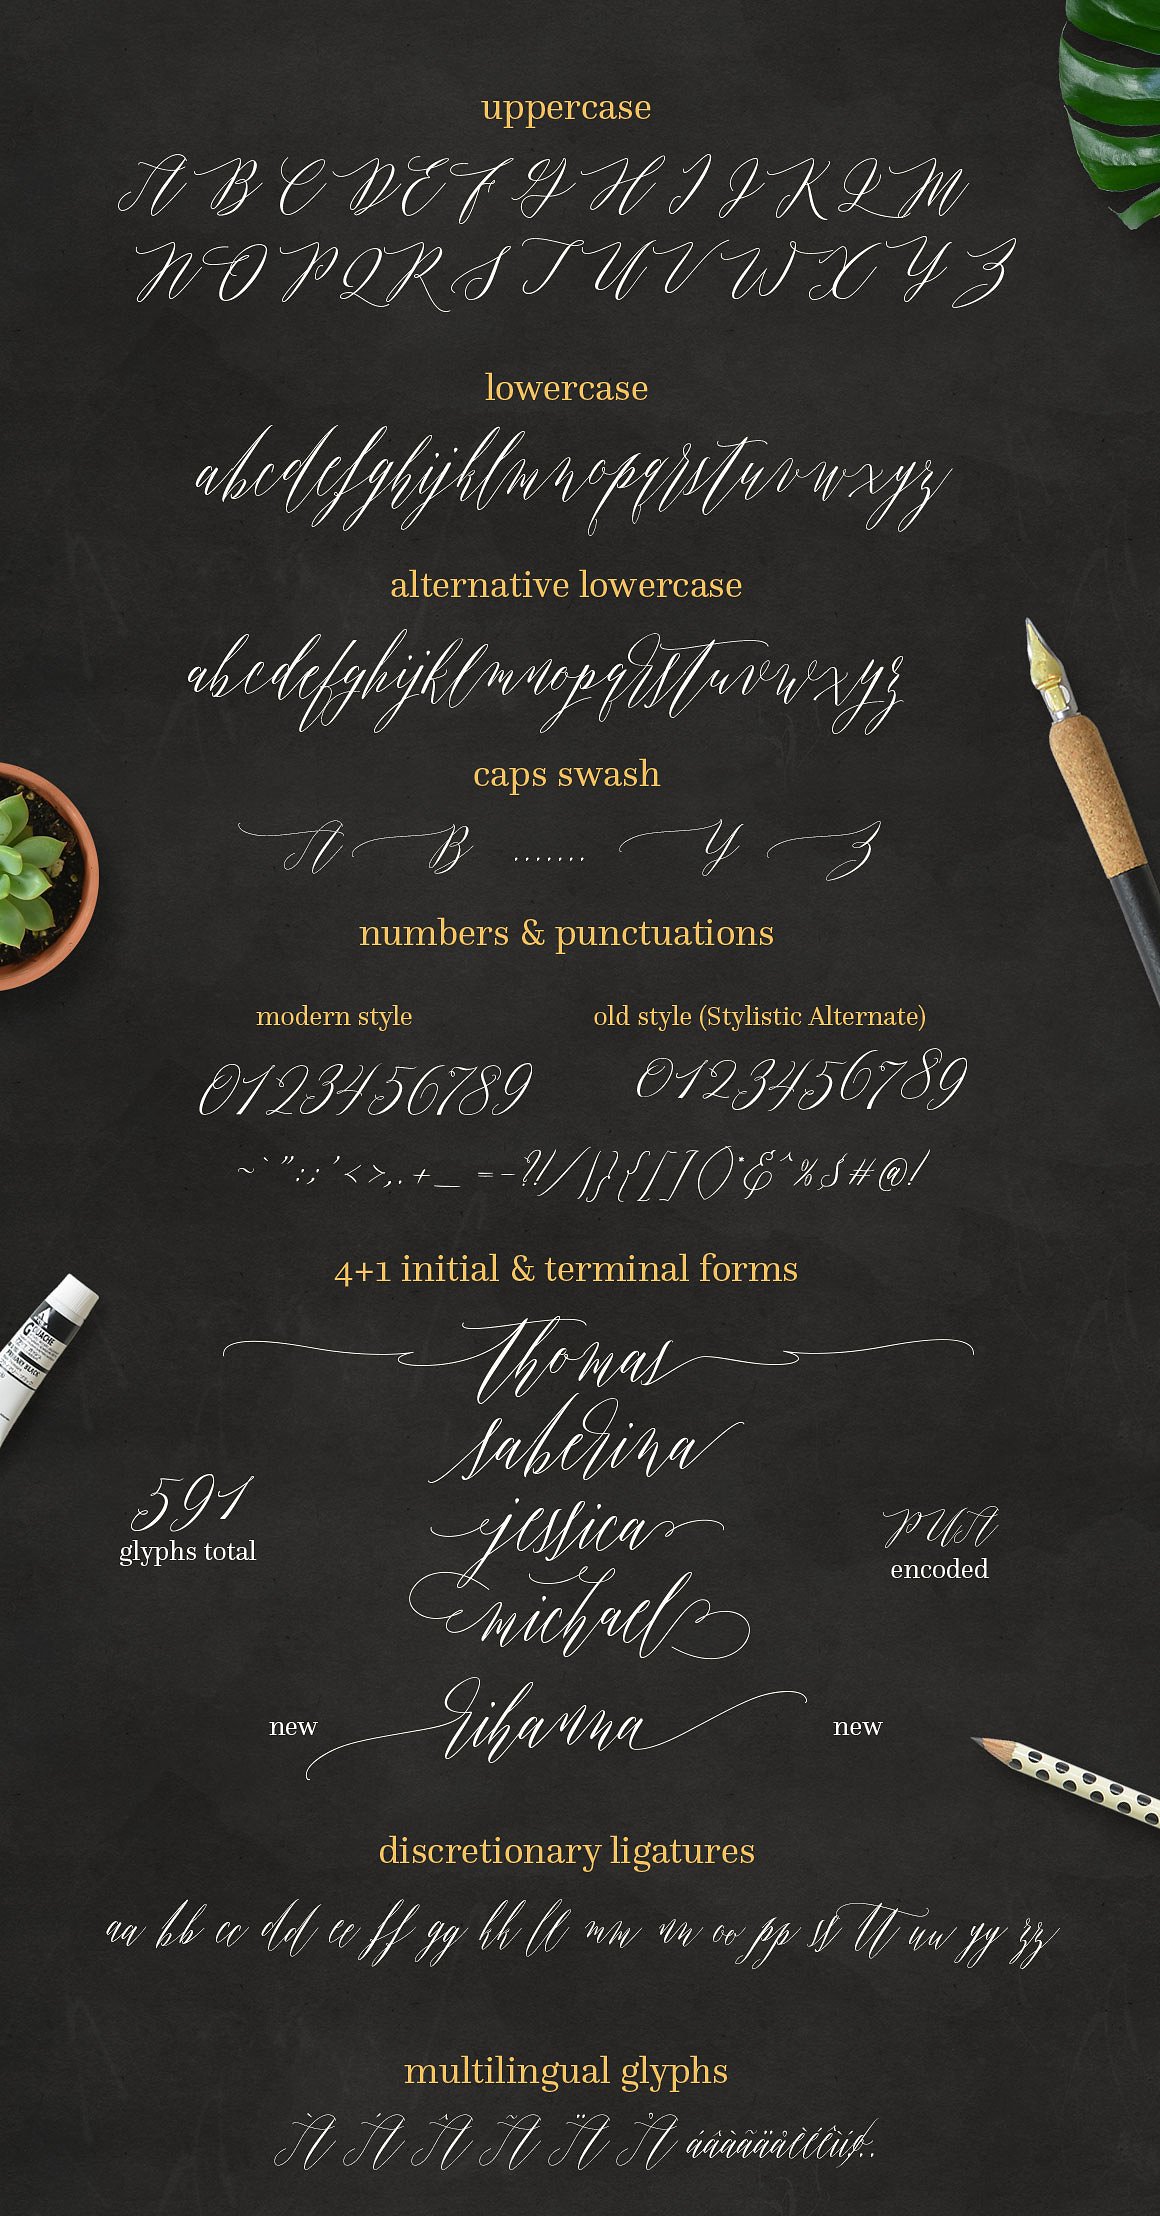 uppercase
A B C D E F G H I J K L M
N O P Q R S T U V W X Y Z
lowercase
abcdefghijklmnopqrstuvwxyz
alternative lowercase
abcdefghijklmnopqrstuvwxyz
caps swash
A B ....... Y Z
numbers & punctuations
modern style old style (Stylistic Alternate)
0123456789 0123456789
~ ` " : ; ' < > , . + _ = - ? ! / | } { [ ] ( ) * & ^ % $ # @ !
4+1 initial & terminal forms
thomas
saberina
591 jessica PUA
glyphs total encoded
michael
new rihanna new
discretionary ligatures
aa bb cc dd ee ff gg kk ll mm nn oo pp ss tt uu yy zz
multilingual glyphs
À Á Â Ã Ä Å
GOUACHE